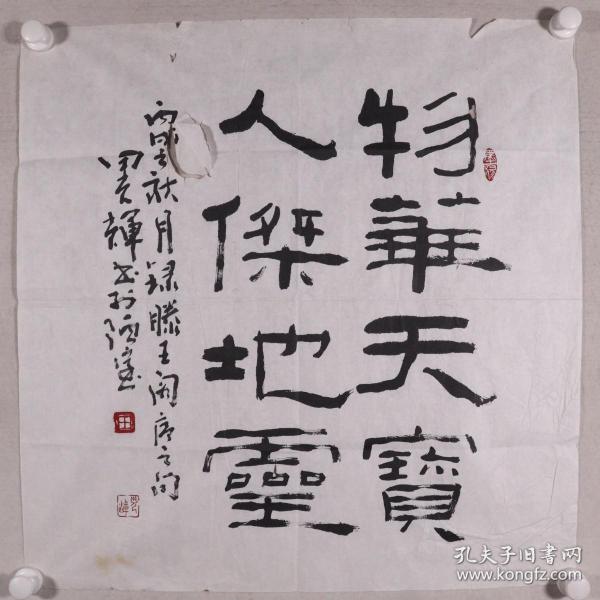 物華天寶
人傑地靈
秋月錄滕王閣序之句
書於
孔夫子旧书网
www.kongfz.com